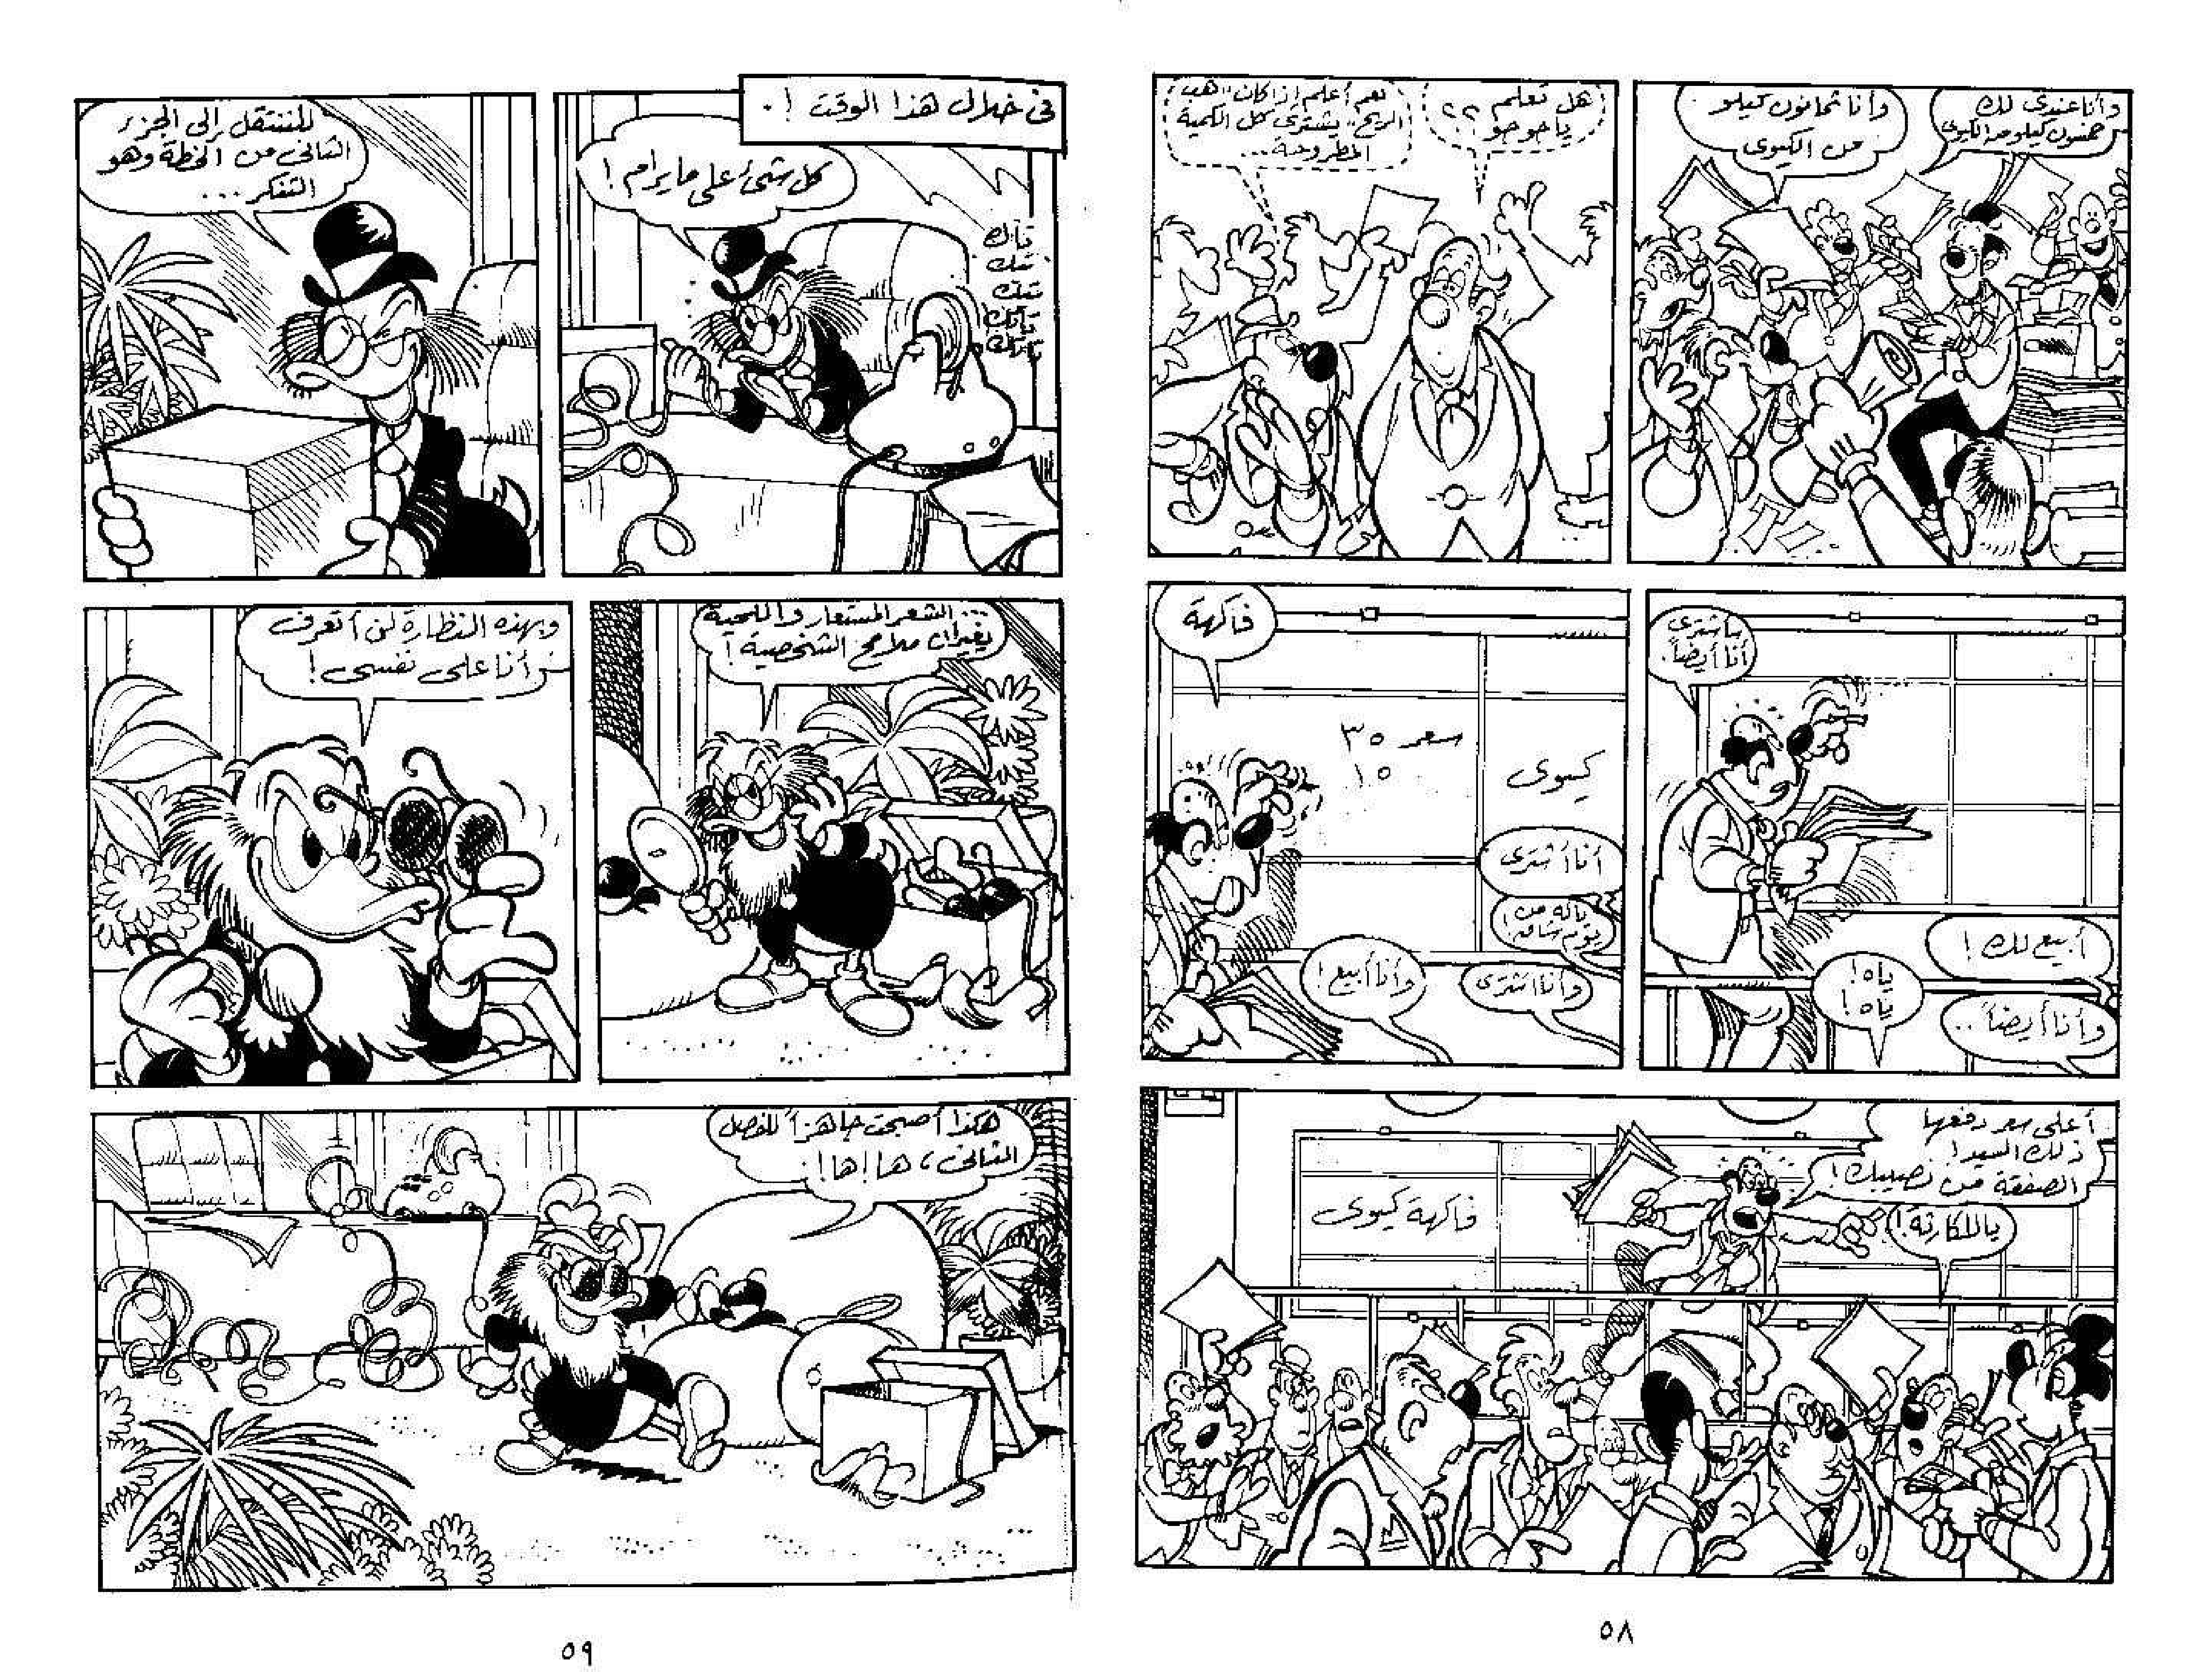 وأنا عندى لك
خمسون كيلو من الكيوى
وأنا ثمانون كيلو
من الكيوى
هل تعلم
يا جوجو ؟؟
نعم أعلم إذا كان "هب
الريح" يشترى كل الكمية
المطروحة..
سأشترى
أنا أيضاً.
أبيع لك !
ياه!
ياه!
وأنا أيضاً..
فاكهة
سعر ٣٥
١٥
كيوى
أنا أشترى
ياله من
يوم شاق!
وأنا أشترى
وأنا أبيع !
أعلى سعر دفعها
ذلك السيد!
الصفقة من نصيبك !
ياللكارثة !
فاكهة كيوى
٥٨
فى خلال هذا الوقت ! .
كل شئ على ما يرام !
تاك
تيك
تيك
تاك
تاك
للننتقل إلى الجزء
الثانى من الخطة وهو
التنكر ...
... الشعر المستعار واللحية
يغيران ملامح الشخصية !
وبهذه النظارة لن أتعرف
أنا على نفسى !
هكذا أصبحت جاهزاً للفصل
الثانى ، ها ! ها !
٥٩